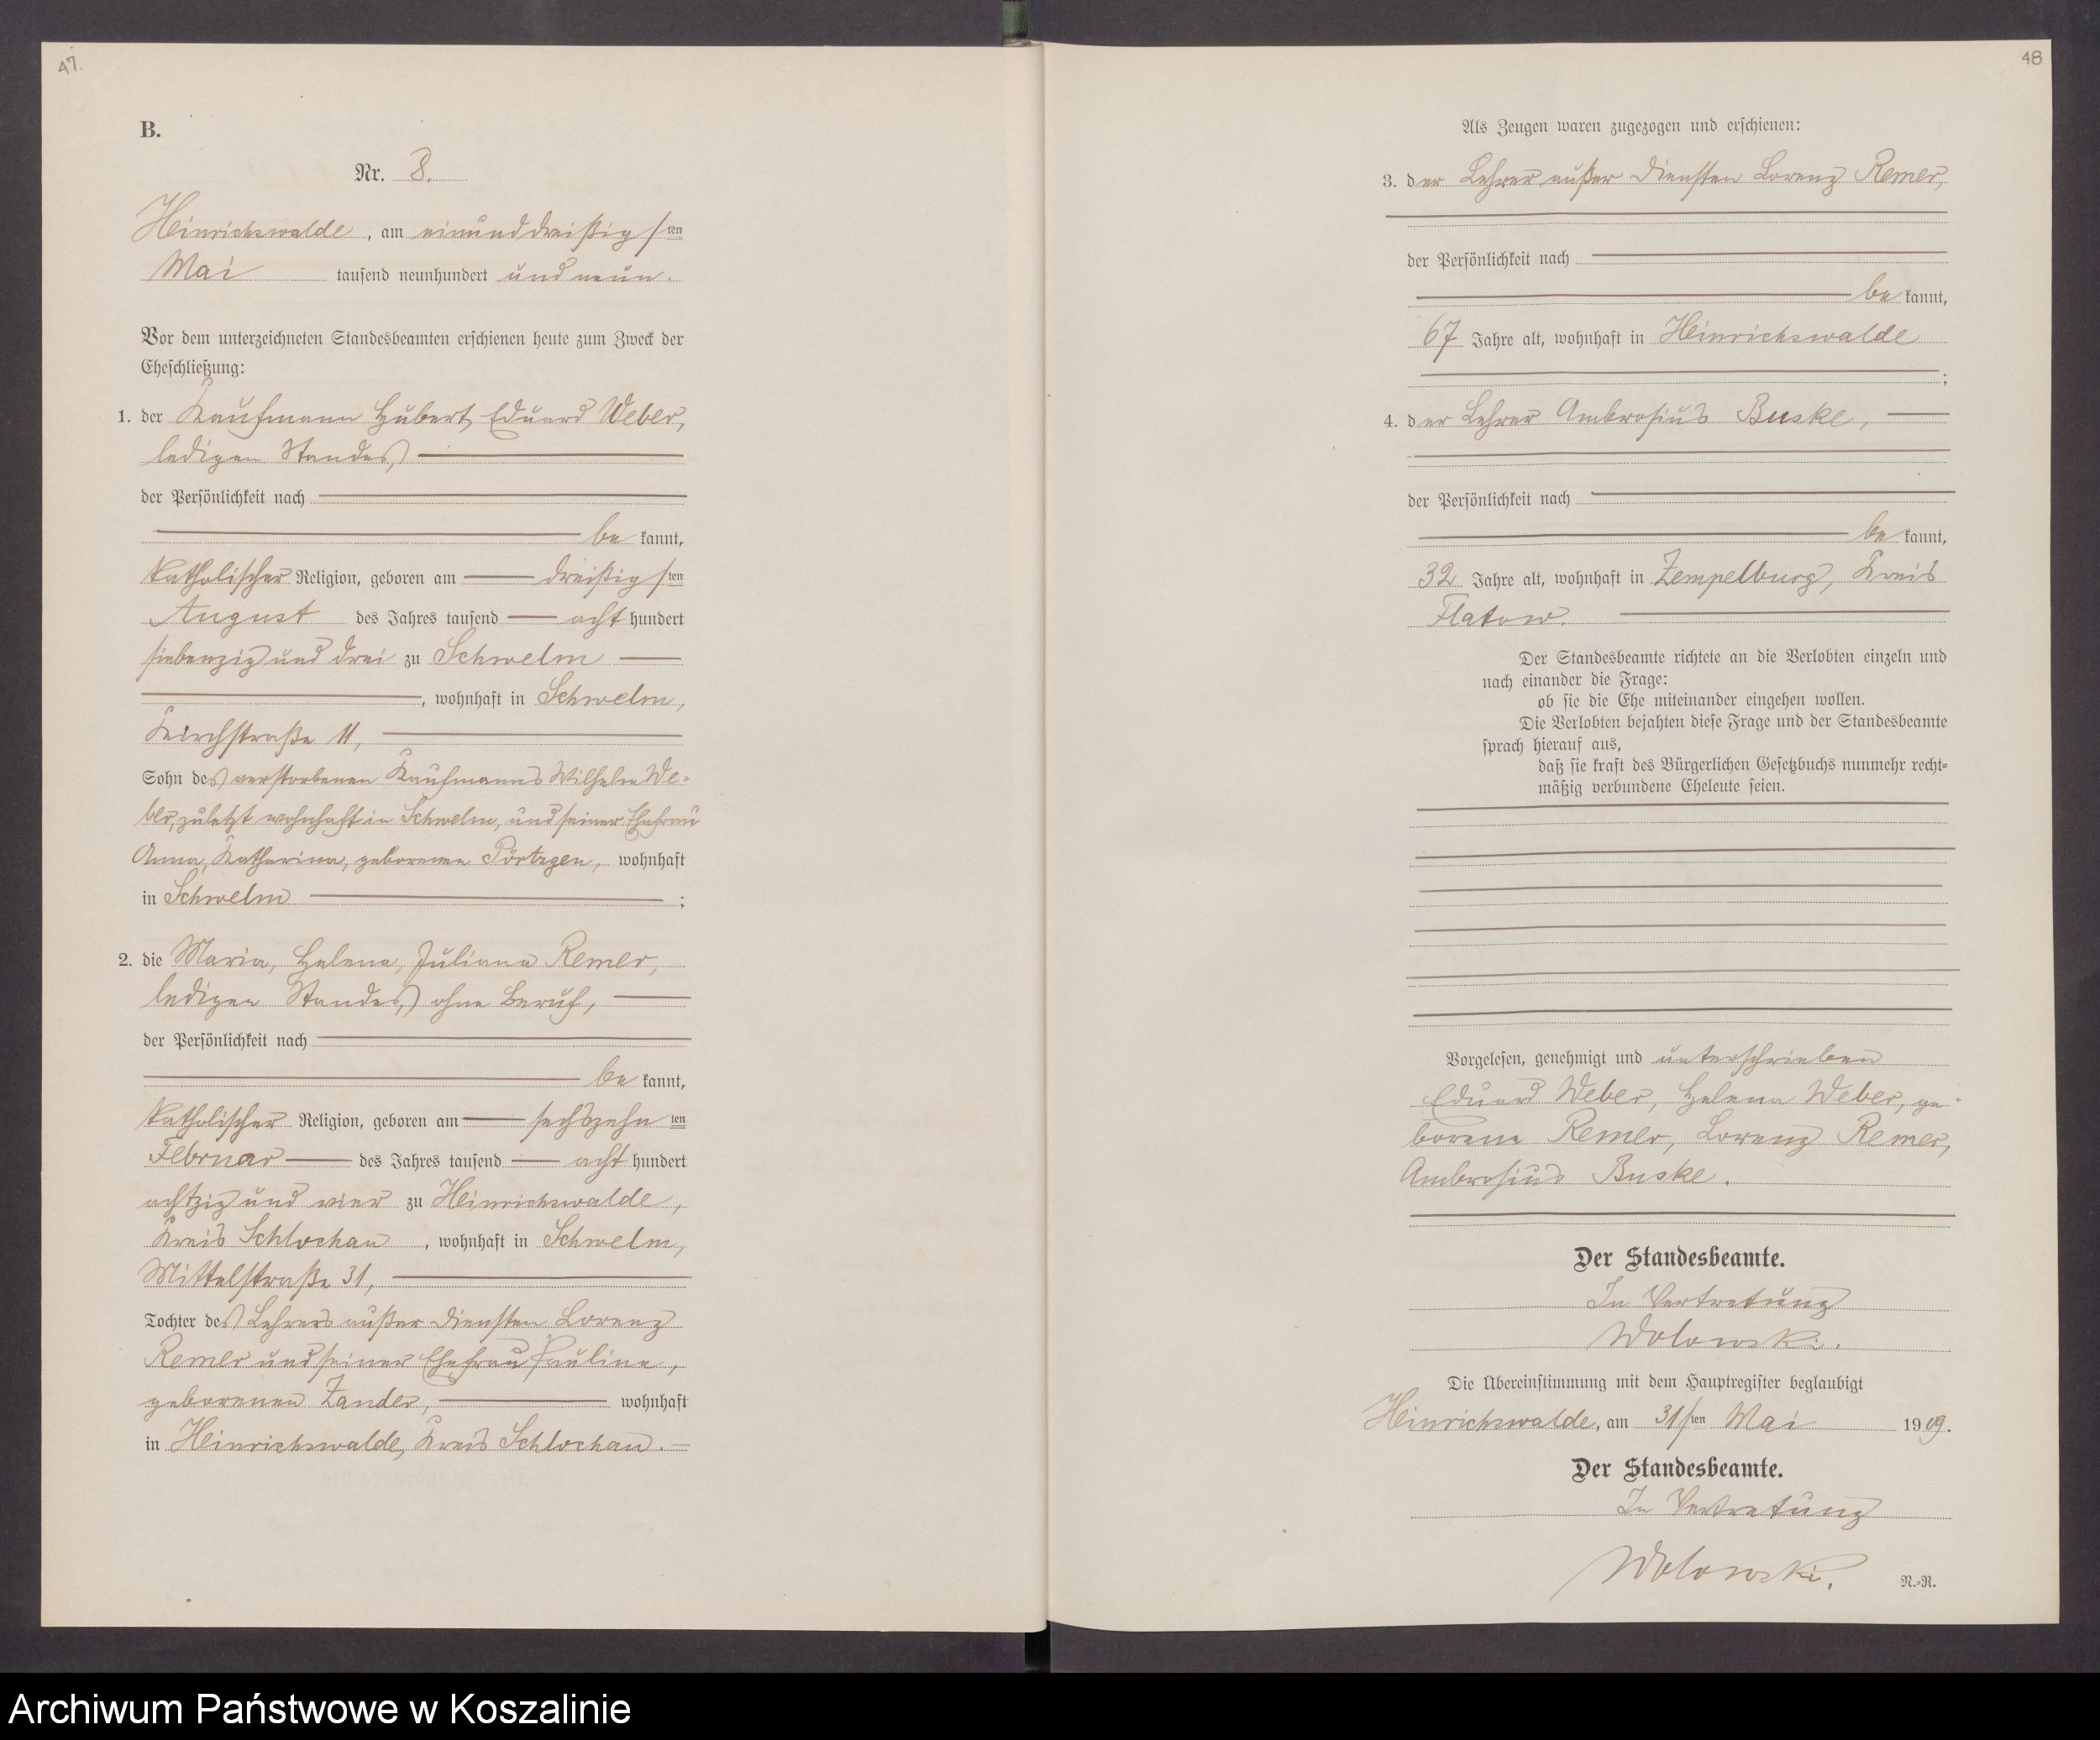 47.
B.
Nr. 8.
Heinrichswalde, am einunddreißigsten
Mai tausend neunhundert und neun.
Vor dem unterzeichneten Standesbeamten erschienen heute zum Zweck der
Eheschließung:
1. der Kaufmann Hubert Eduard Weber,
ledigen Standes,
der Persönlichkeit nach
be kannt,
katholischer Religion, geboren am dreißigsten
August des Jahres tausend acht hundert
siebenzig und drei zu Schwelm
, wohnhaft in Schwelm,
Kirchstraße 11,
Sohn des verstorbenen Kaufmanns Wilhelm We=
ber, zuletzt wohnhaft in Schwelm, und seiner Ehefrau
Anna, Katharina, geborenen wohnhaft
in Schwelm ;
2. die Maria, Helena, Juliana Remer,
ledigen Standes, ohne Beruf,
der Persönlichkeit nach
be kannt,
katholischer Religion, geboren am sechszehn ten
Februar des Jahres tausend acht hundert
achtzig und vier zu Heinrichswalde,
Kreis Schlochau , wohnhaft in Schwelm,
Mittelstraße 31,
Tochter des Lehrers außer Diensten Lorenz
Remer und seiner Ehefrau Pauline,
geborenen Zander, wohnhaft
in Heinrichswalde, Kreis Schlochau.
48
Als Zeugen waren zugezogen und erschienen:
3. der Lehrer außer Diensten Lorenz Remer,
der Persönlichkeit nach
be kannt,
67 Jahre alt, wohnhaft in Heinrichswalde
;
4. der Lehrer Ambrosius Buske,
der Persönlichkeit nach
be kannt,
32 Jahre alt, wohnhaft in Zempelburg, Kreis
Flatow.
Der Standesbeamte richtete an die Verlobten einzeln und
nach einander die Frage:
ob sie die Ehe miteinander eingehen wollen.
Die Verlobten bejahten diese Frage und der Standesbeamte
sprach hierauf aus,
daß sie kraft des Bürgerlichen Gesetzbuchs nunmehr recht=
mäßig verbundene Eheleute seien.
Vorgelesen, genehmigt und unterschrieben
Eduard Weber, Helena Weber, ge=
borene Remer, Lorenz Remer,
Ambrosius Buske.
Der Standesbeamte.
In Vertretung
Wolowski.
Die Übereinstimmung mit dem Hauptregister beglaubigt
Heinrichswalde, am 31sten Mai 1909.
Der Standesbeamte.
In Vertretung
Wolowski.
N.=R.
Archiwum Państwowe w Koszalinie